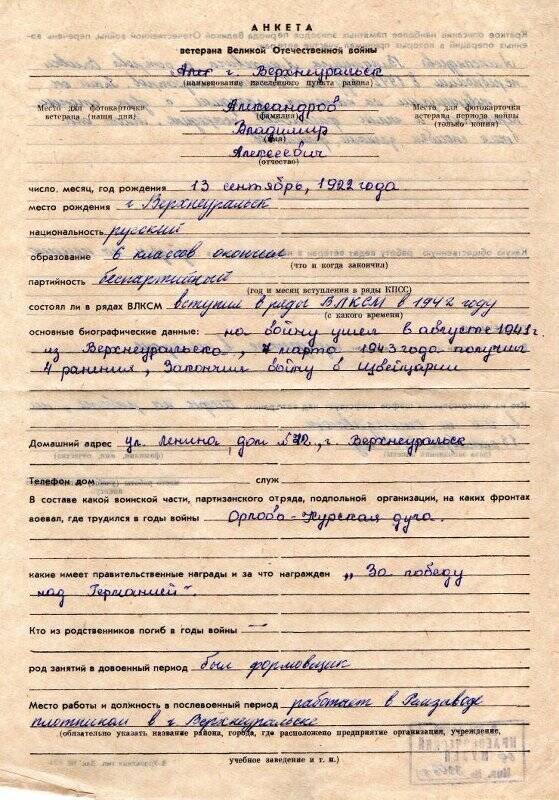 АНКЕТА
ветерана Великой Отечественной войны
г. Верхнеуральск
(наименование населенного пункта района)
Александров
Место для фотокарточки ветерана (наши дни)
(фамилия)
Место для фотокарточки ветерана периода войны (только копия)
Владимир
(имя)
Алексеевич
(отчество)
число, месяц, год рождения 13 сентябрь, 1922 года
место рождения г Верхнеуральск
национальность русский
образование 6 классов окончил
(что и когда закончил)
партийность беспартийный
(год и месяц вступления в ряды КПСС)
состоял ли в рядах ВЛКСМ вступил в ряды ВЛКСМ в 1942 году
(с какого времени)
основные биографические данные: на войну ушел в августе 1941 г.
из Верхнеуральска, 7 марта 1943 года получил
4 ранения, Закончил войну в Швейцарии
Домашний адрес ул. Ленина, дом №, г. Верхнеуральск
Телефон дом служ
В составе какой воинской части, партизанского отряда, подпольной организации, на каких фронтах
воевал, где трудился в годы войны Орлово-Курская дуга.
какие имеет правительственные награды и за что награжден „За победу
над Германией".
Кто из родственников погиб в годы войны —
род занятий в довоенный период был формовщик
Место работы и должность в послевоенный период работает в Ремзаводе
плотником в г. Верхнеуральске
(обязательно указать название района, города, где расположено предприятие организация, учреждение,
учебное заведение и т. п.)